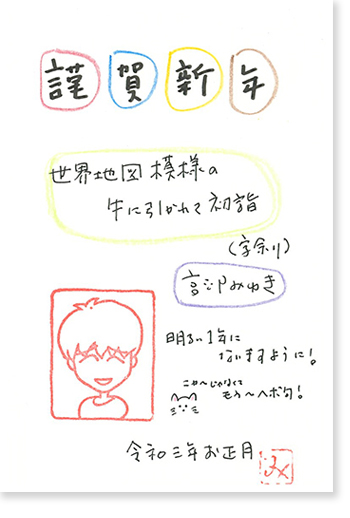 謹賀新年
世界地図模様の
牛に引かれて初詣
(字余り)
高沢みゆき
明るい1年に
なりますように!
ニャ〜じゃなくて
もう〜へボ句!
令和三年お正月